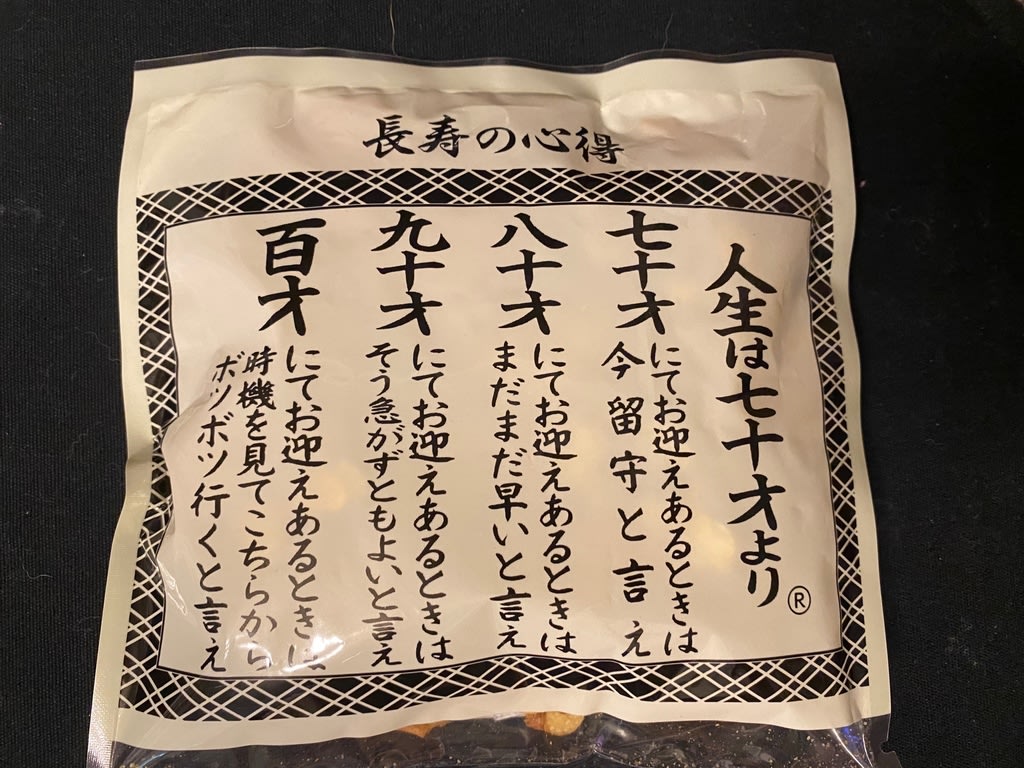 長寿の心得
人生は七十才より®
七十才にてお迎えあるときは
今留守と言え
八十才にてお迎えあるときは
まだまだ早いと言え
九十才にてお迎えあるときは
そう急がずともよいと言え
百才にてお迎えあるときは
時機を見てこちらから
ボツボツ行くと言え